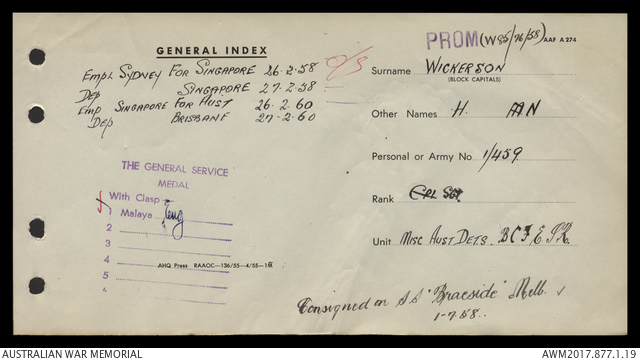 GENERAL INDEX
Empl SYDNEY FOR SINGAPORE 26-2-58
Dep SINGAPORE 27-2-58
Emp SINGAPORE FOR AUST 26.2.60
Dep BRISBANE 27-2.60
O/S
THE GENERAL SERVICE
MEDAL
With Clasp
1 Malaya
2
3
4
5
AHQ Press RAAOC—136/55—4/55—1M
PROM (W85/76/58) AAF A 274
Surname WICKERSON
(BLOCK CAPITALS)
Other Names H.
Personal or Army No. 1/459
Rank CPL SGT
Unit MISC AUST DETS.
Consigned on S.S "Braeside" Melb.
1-7.58.
AUSTRALIAN WAR MEMORIAL
AWM2017.877.1.19